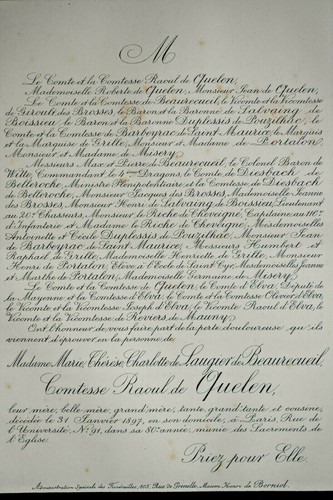 M
Le Comte et la Comtesse Raoul de Quelen,
Mademoiselle Roberte de Quelen, Monsieur Jean de Quelen,
Le Comte et la Comtesse de Beaurecueil, le Vicomte et la Vicomtesse
de Giroult des Brosses, le Baron et la Baronne de Salvaing de
Boissieu, le Baron et la Baronne Duplessis de Pouzilhac, le
Comte et la Comtesse de Barbeyrac de Saint Maurice, le Marquis
et la Marquise de Grille, Monsieur et Madame de Portalon,
Monsieur et Madame de Misery,
Messieurs Max et Pierre de Beaurecueil, le Colonel Baron de
Witte, Commandant le 4ème Dragons, le Comte de Diesbach de
Belleroche, Ministre Plénipotentiaire et la Comtesse de Diesbach
de Belleroche, Monsieur Jacques des Brosses, Mademoiselle Jeanne
des Brosses, Monsieur Henri de Salvaing de Boissieu, Lieutenant
au 20e Chasseurs, Monsieur le Riche de Cheveigné, Capitaine au 110e
d'Infanterie et Madame le Riche de Cheveigné, Mesdemoiselles
et Cécile Duplessis de Pouzilhac, Monsieur Jean
de Barbeyrac de Saint Maurice, Messieurs Humbert et
Raphaël de Grille, Mademoiselle Henriette de Grille, Monsieur
Henri de Portalon, Elève à l'Ecole de Saint Cyr, Mesdemoiselles Jeanne
et Marthe de Portalon, Mademoiselle Germaine de Misery,
Le Comte et la Comtesse de Quelen, le Comte d'Elva, Député de
la Mayenne et la Comtesse d'Elva, le Comte et la Comtesse Olivier d'Elva,
le Vicomte et la Vicomtesse Joseph d'Elva, le Vicomte Raoul d'Elva, le
Vicomte et la Vicomtesse de Reviers de Mauny,
Ont l'honneur de vous faire part de la perte douloureuse qu'ils
viennent d'éprouver en la personne de
Madame Marie, Thérèse, Charlotte de Laugier de Beaurecueil,
Comtesse Raoul de Quelen,
leur mère, belle-mère, grand'mère, tante, grand'tante et cousine,
décédée le 31 Janvier 1897, en son domicile, à Paris, Rue de
l'Université, No 91, dans sa 80e année, munie des Sacrements de
l'Eglise.
Priez pour Elle.
Administration Spéciale des Funérailles, 105, Rue de Grenelle, Maison Henri de Borniol.